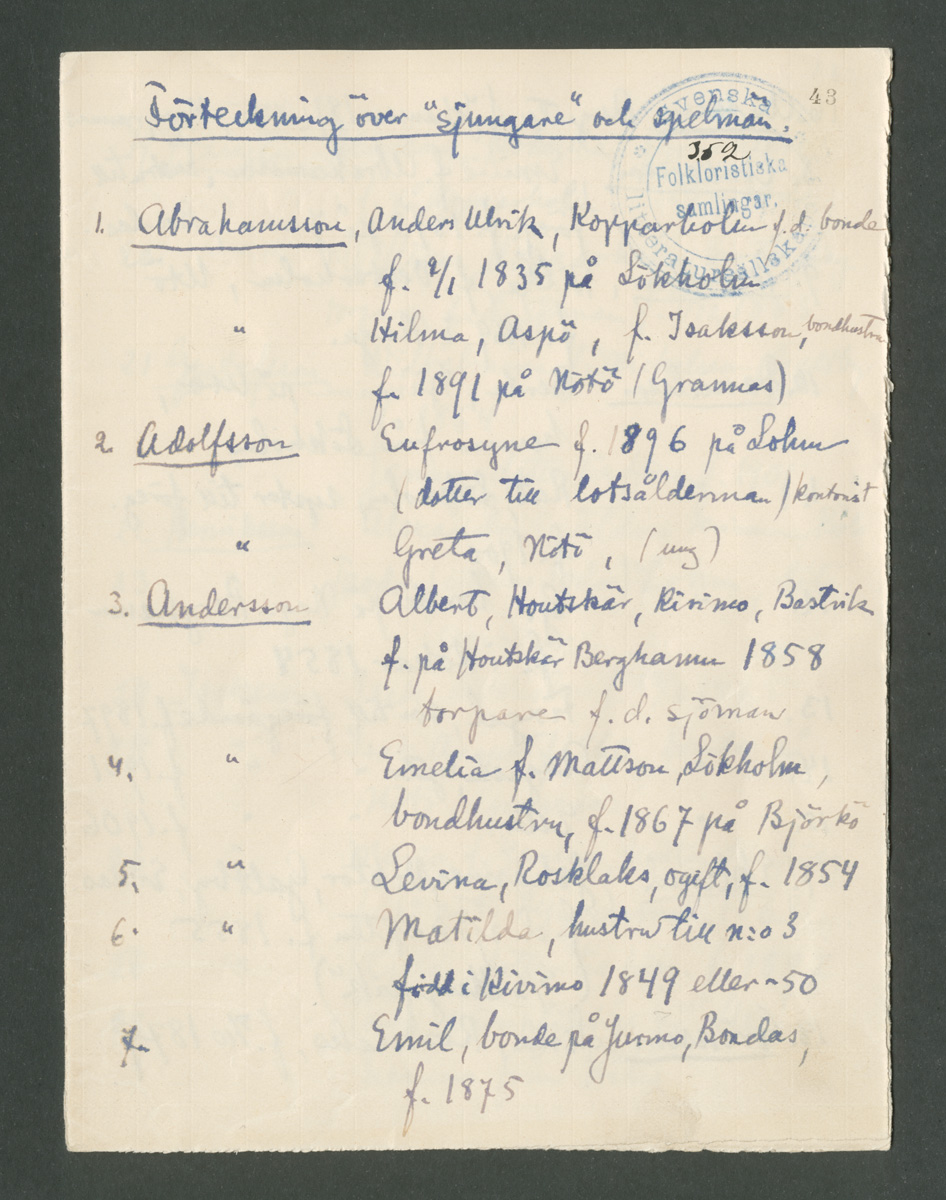 43
Förteckning över "sjungare" och spelmän.
Svenska litteratursällsk.
352
Folkloristiska
samlingar.
1. Abrahamsson, Anders Ulrik, Kopparholm f.d. bonde
f. 9/1 1835 på Lökholm
" Hilma, Aspö, f. Isaksson, bondhustru
f. 1891 på Nötö (Grannas)
2. Adolfsson Eufrosyne f. 1896 på Lohm
(dotter till lotsålderman) kontorist
" Greta, Nötö, (ung)
3. Andersson Albert, Houtskär, Kivimo, Bastvik
f. på Houtskär Berghamn 1858
torpare f.d. sjöman
4. " Emelia f. Mattson, Lökholm,
bondhustru, f. 1867 på Björkö
5. " Levina, Rosklaks, ogift, f. 1854
6. " Matilda, hustru till n:o 3
född i Kivimo 1849 eller -50
7. Emil, bonde på Jurmo, Bondas,
f. 1875